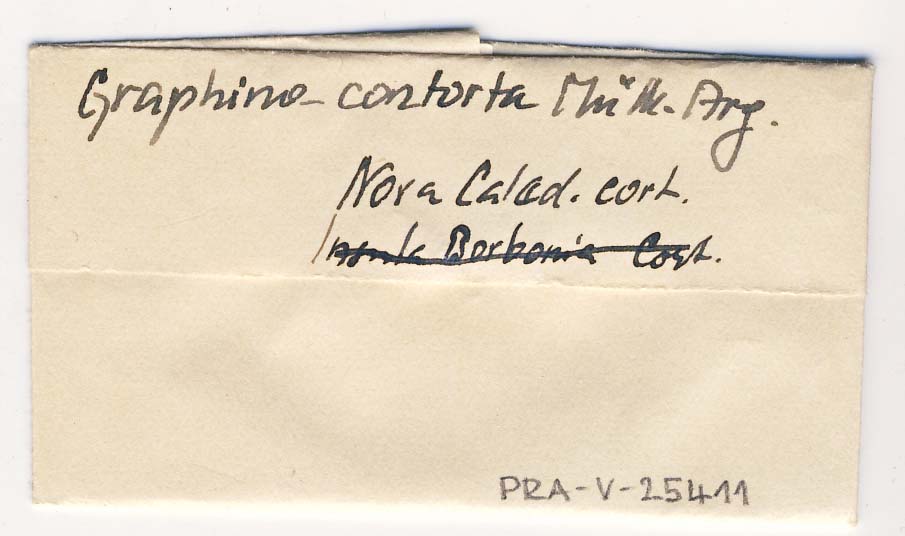 Graphina contorta Müll. Arg.
Nova Caled. cort.
Insula Borbonia Cort.
PRA-V-25411